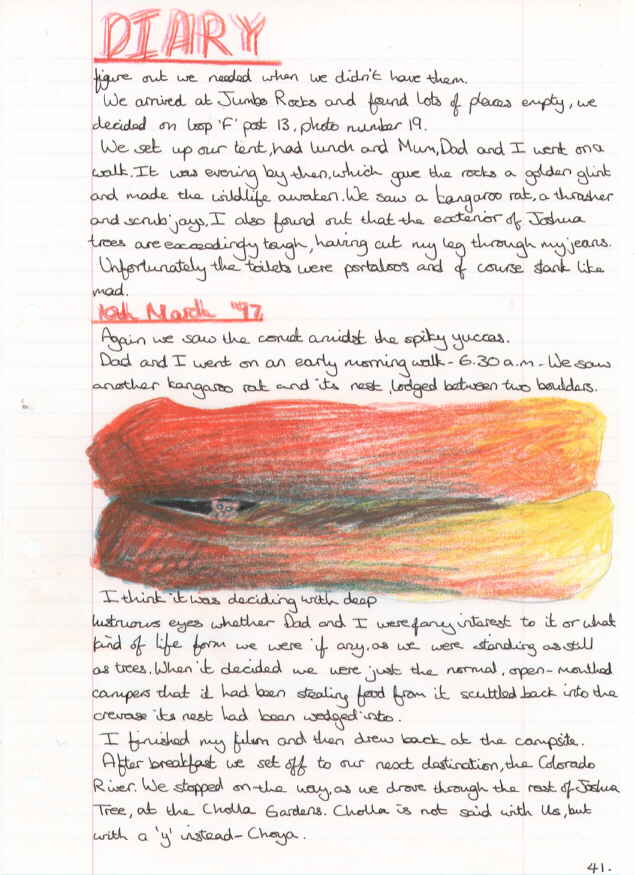 DIARY
figure out we needed when we didn't have them.
We arrived at Jumbo Rocks and found lots of places empty, we
decided on loop 'F' post 13, photo number 19.
We set up our tent, had lunch and Mum, Dad and I went on a
walk. It was evening by then, which gave the rocks a golden glint
and made the wildlife awaken. We saw a kangaroo rat, a thrasher
and scrub jays, I also found out that the exterior of Joshua
trees are exceedingly tough, having cut my leg through my jeans.
Unfortunately the toilets were portaloos and of course stank like
mad.
10th March '97
Again we saw the comet amidst the spiky yuccas.
Dad and I went on an early morning walk - 6.30 a.m - We saw
another kangaroo rat and its nest, lodged between two boulders.
I think it was deciding with deep
lustruous eyes whether Dad and I were fany interest to it or what
kind of life form we were if any, as we were standing as still
as trees. When it decided we were just the normal, open-mouthed
campers that it had been stealing food from it scuttled back into the
crevase its nest had been wedged into.
I finished my film and then drew back at the campsite.
After breakfast we set off to our next destination, the Colorado
River. We stopped on the way, as we drove through the rest of Joshua
Tree, at the Cholla Gardens. Cholla is not said with lls, but
with a 'y' instead - Choya.
41.